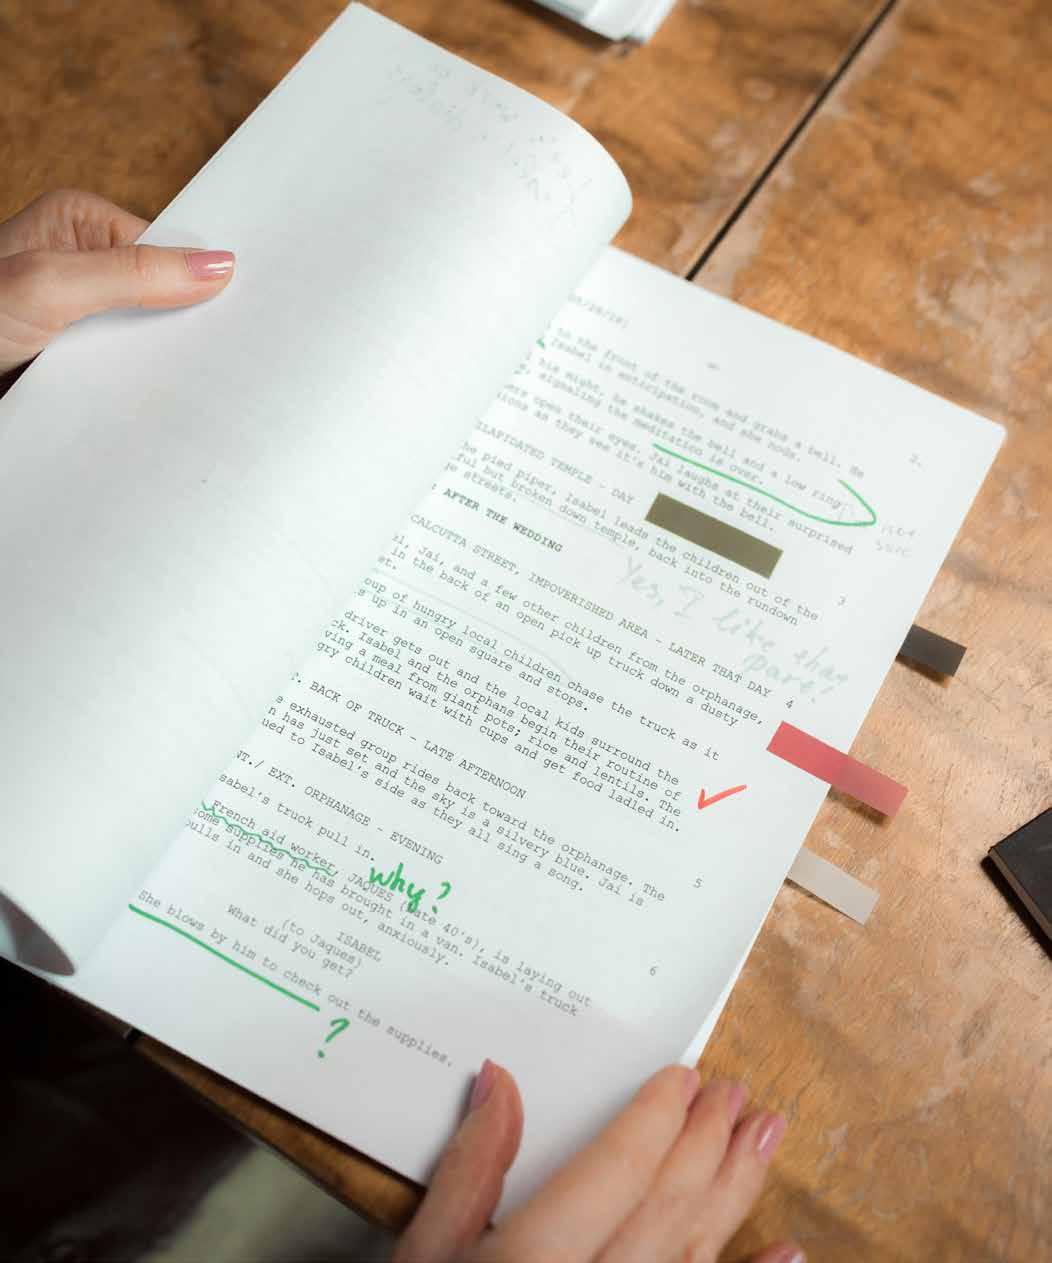 2.
to the front of the room and grabs a bell. He
Isabel in anticipation, and she nods.
his might, he shakes the bell and a low ring
signaling the meditation is over.
open their eyes. Jai laughs at their surprised
as they see it's him with the bell.
not
sure
ILAPIDATED TEMPLE - DAY
3
he pied piper, Isabel leads the children out of the
ful but broken down temple, back into the rundown
streets.
Yes, I like that
part!
: AFTER THE WEDDING
CALCUTTA STREET, IMPOVERISHED AREA - LATER THAT DAY
4
Jai, and a few other children from the orphanage,
in the back of an open pick up truck down a dusty
et.
oup of hungry local children chase the truck as it
s up in an open square and stops.
driver gets out and the local kids surround the
ck. Isabel and the orphans begin their routine of
ving a meal from giant pots; rice and lentils. The
gry children wait with cups and get food ladled in.
. BACK OF TRUCK - LATE AFTERNOON
5
e exhausted group rides back toward the orphanage. The
n has just set and the sky is a silvery blue. Jai is
ued to Isabel's side as they all sing a song.
NT./ EXT. ORPHANAGE - EVENING
6
sabel's truck pull in.
why?
French aid worker, JAQUES (late 40's), is laying out
ome supplies he has brought in a van. Isabel's truck
ulls in and she hops out, anxiously.
ISABEL
(to Jaques)
What did you get?
She blows by him to check out the supplies.
?